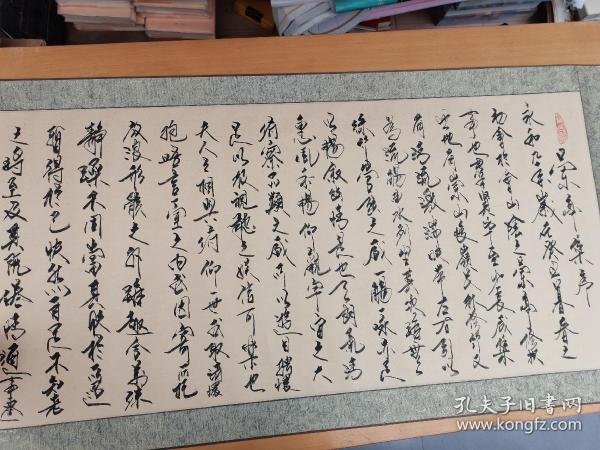 兰亭集序
永和九年岁在癸丑暮春之
初会于会山阴之兰亭修禊
事也群贤毕至少长咸集
此地有崇山峻岭茂林修竹又
有清流激湍映带左右引以
为流觞曲水列坐其次虽无
丝竹管弦之盛一觞一咏亦足
以畅叙幽情是日也天朗气清
惠风和畅仰观宇宙之大
俯察品类之盛所以游目骋怀
足以极视听之娱信可乐也
夫人之相与俯仰一世或取诸怀
抱晤言一室之内或因寄所托
放浪形骸之外虽趣舍万殊
静躁不同当其欣于所遇
暂得于己快然自足不知老
之将至及其所之既倦情随事迁
孔夫子旧书网
www.kongfz.com